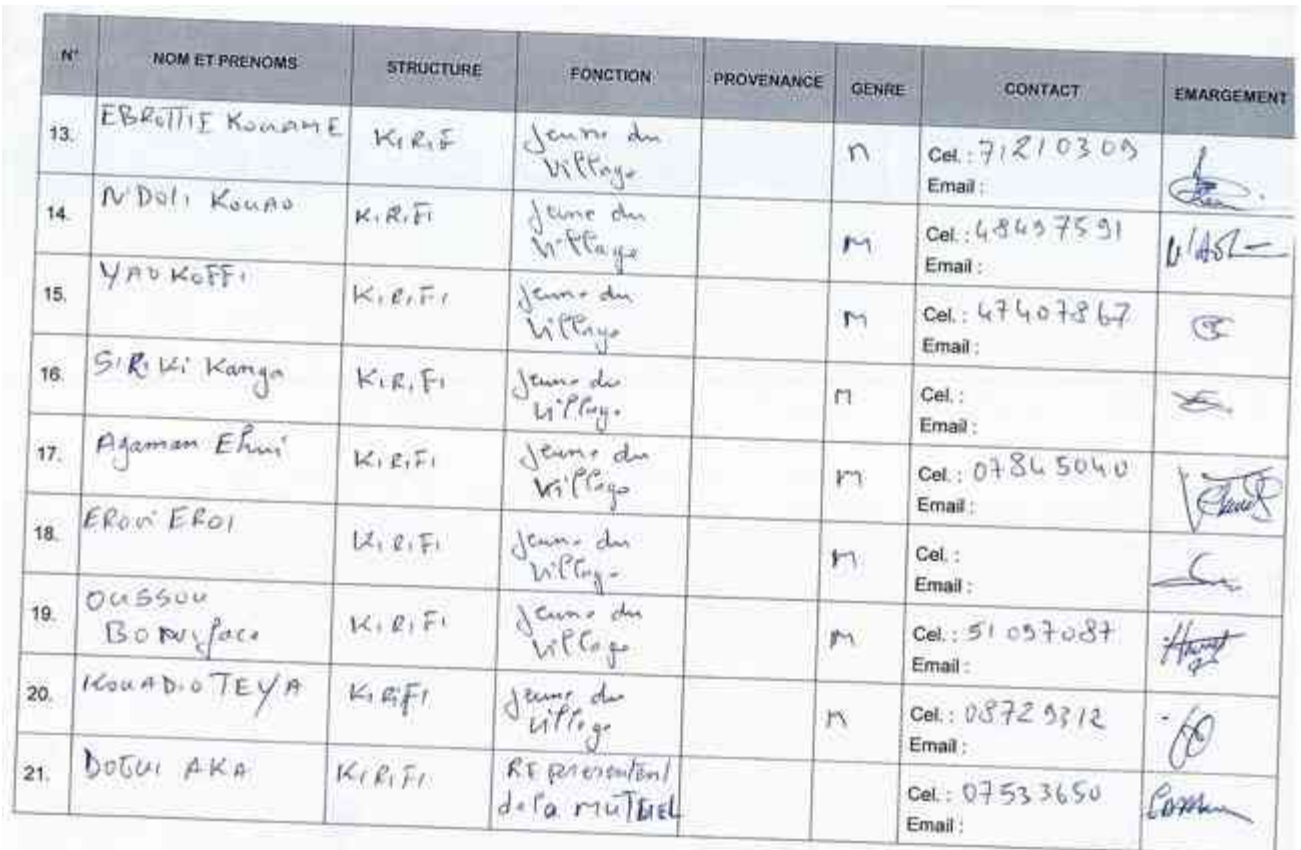 N° NOM ET PRENOMS STRUCTURE FONCTION PROVENANCE GENRE CONTACT EMARGEMENT
13. EBROTTIE KOUAME KIRIF Jeune du Village M Cel. : 71210309
Email :
14. N'DOLI KOUAO KIRIFI Jeune du Village M Cel. : 48497591
Email :
15. YAO KOFFI KIRIFI Jeune du Village M Cel. : 47407867
Email :
16. SIRIKI Kanga KIRIFI Jeune du Village M Cel. :
Email :
17. Agaman Ehui KIRIFI Jeune du Village M Cel. : 07845040
Email :
18. EROI KIRIFI Jeune du Village M Cel. :
Email :
19. OUSSOU Boniface KIRIFI Jeune du Village M Cel. : 51097087
Email :
20. KOUADIO TEYA KIRIFI Jeune du Village M Cel. : 08729312
Email :
21. AKA KIRIFI REpresentent de la MUTUEL Cel. : 07533650
Email :